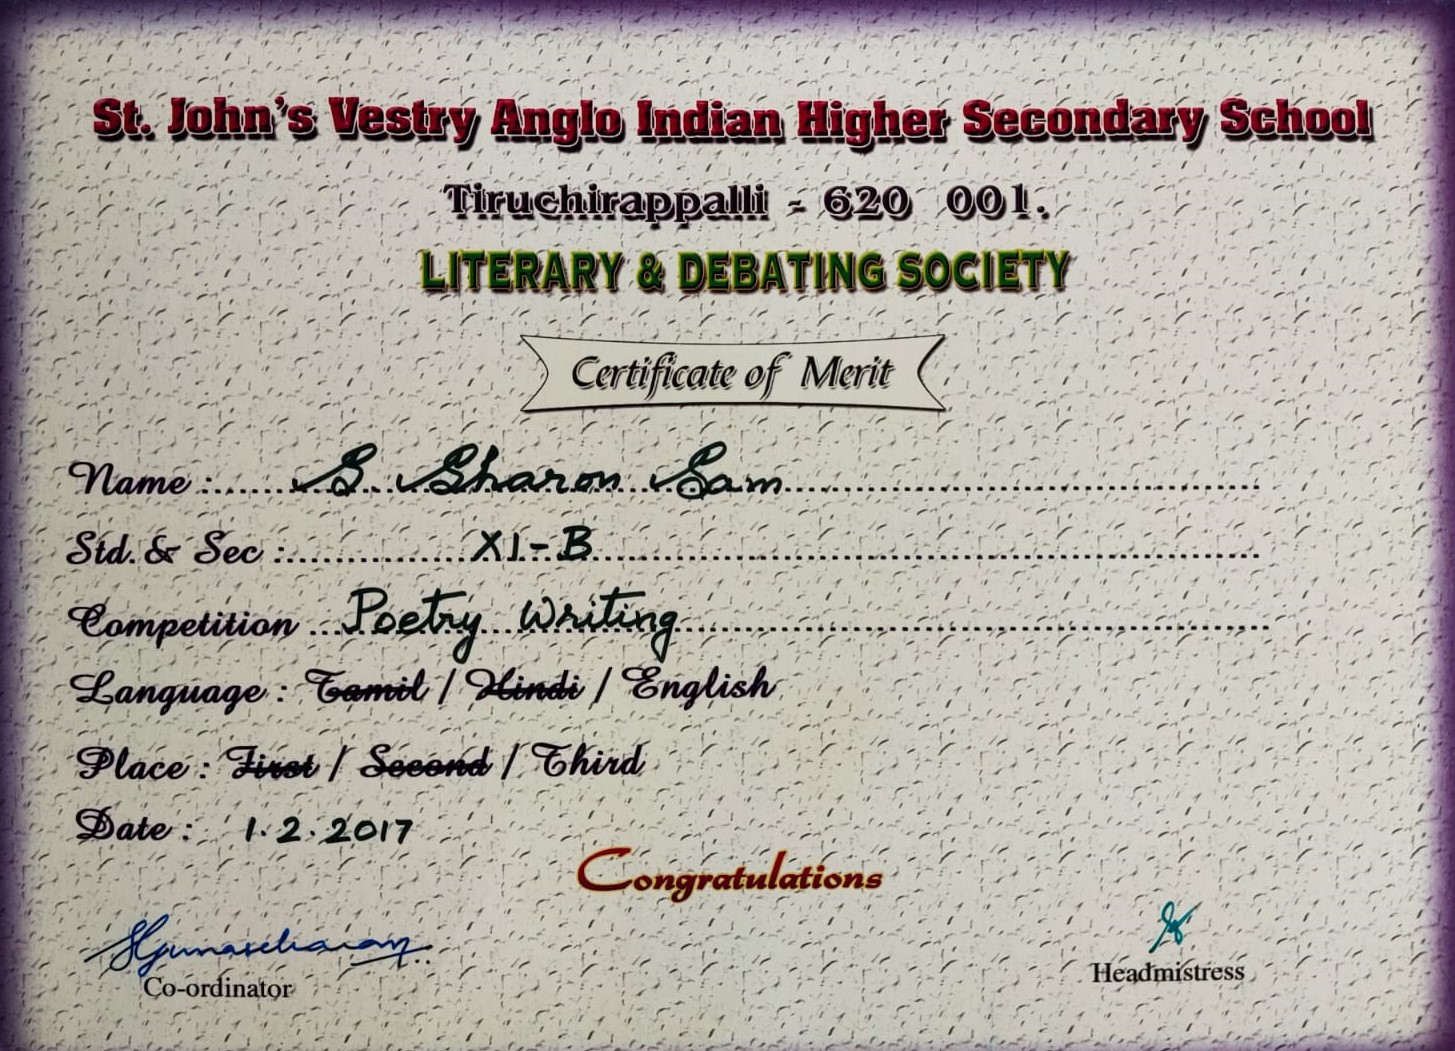 St. John's Vestry Anglo Indian Higher Secondary School
Tiruchirappalli - 620 001.
LITERARY & DEBATING SOCIETY
Certificate of Merit
Name : S Sharon Sam
Std. & Sec : XI-B
Competition Poetry Writing
Language : Tamil / Hindi / English
Place : First / Second / Third
Date : 1.2.2017
Congratulations
Co-ordinator
Headmistress